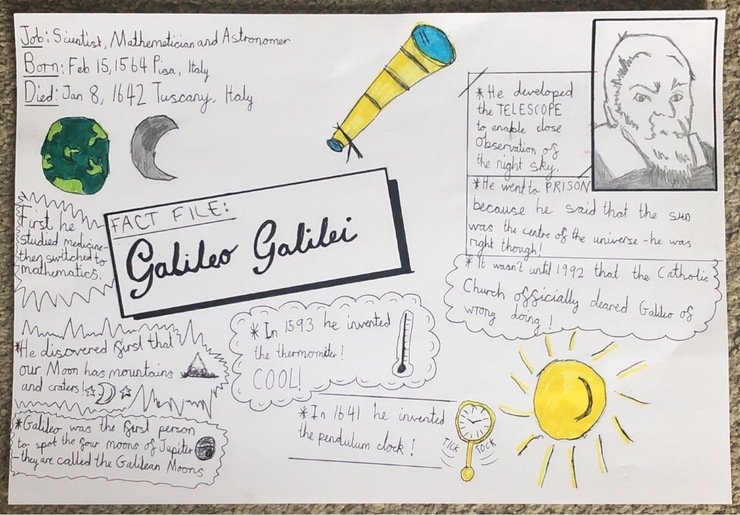 Job: Scientist, Mathemetician and Astronomer
Born: Feb 15, 1564 Pisa, Italy
Died: Jan 8, 1642 Tuscany, Italy
FACT FILE:
Galileo Galilei
*He developed
the TELESCOPE
to enable close
observation of
the night sky.
*He went to PRISON
because he said that the sun
was the centre of the universe - he was
right though!
*It wasn't until 1992 that the Catholic
Church officially cleared Galileo of
wrong doing!
First he
studied medicine -
then switched to
mathematics.
*He discovered first that
our Moon has mountains
and craters!
*Galileo was the first person
to spot the four moons of Jupiter
- they are called the Galilean Moons
*In 1593 he invented
the thermometer!
COOL!
*In 1641 he invented
the pendulum clock!
TICK TOCK